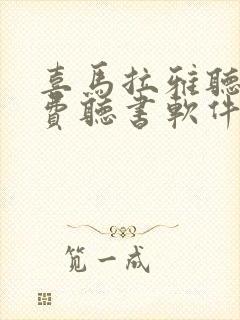 喜馬拉雅聽
費聽書軟件
笕一成